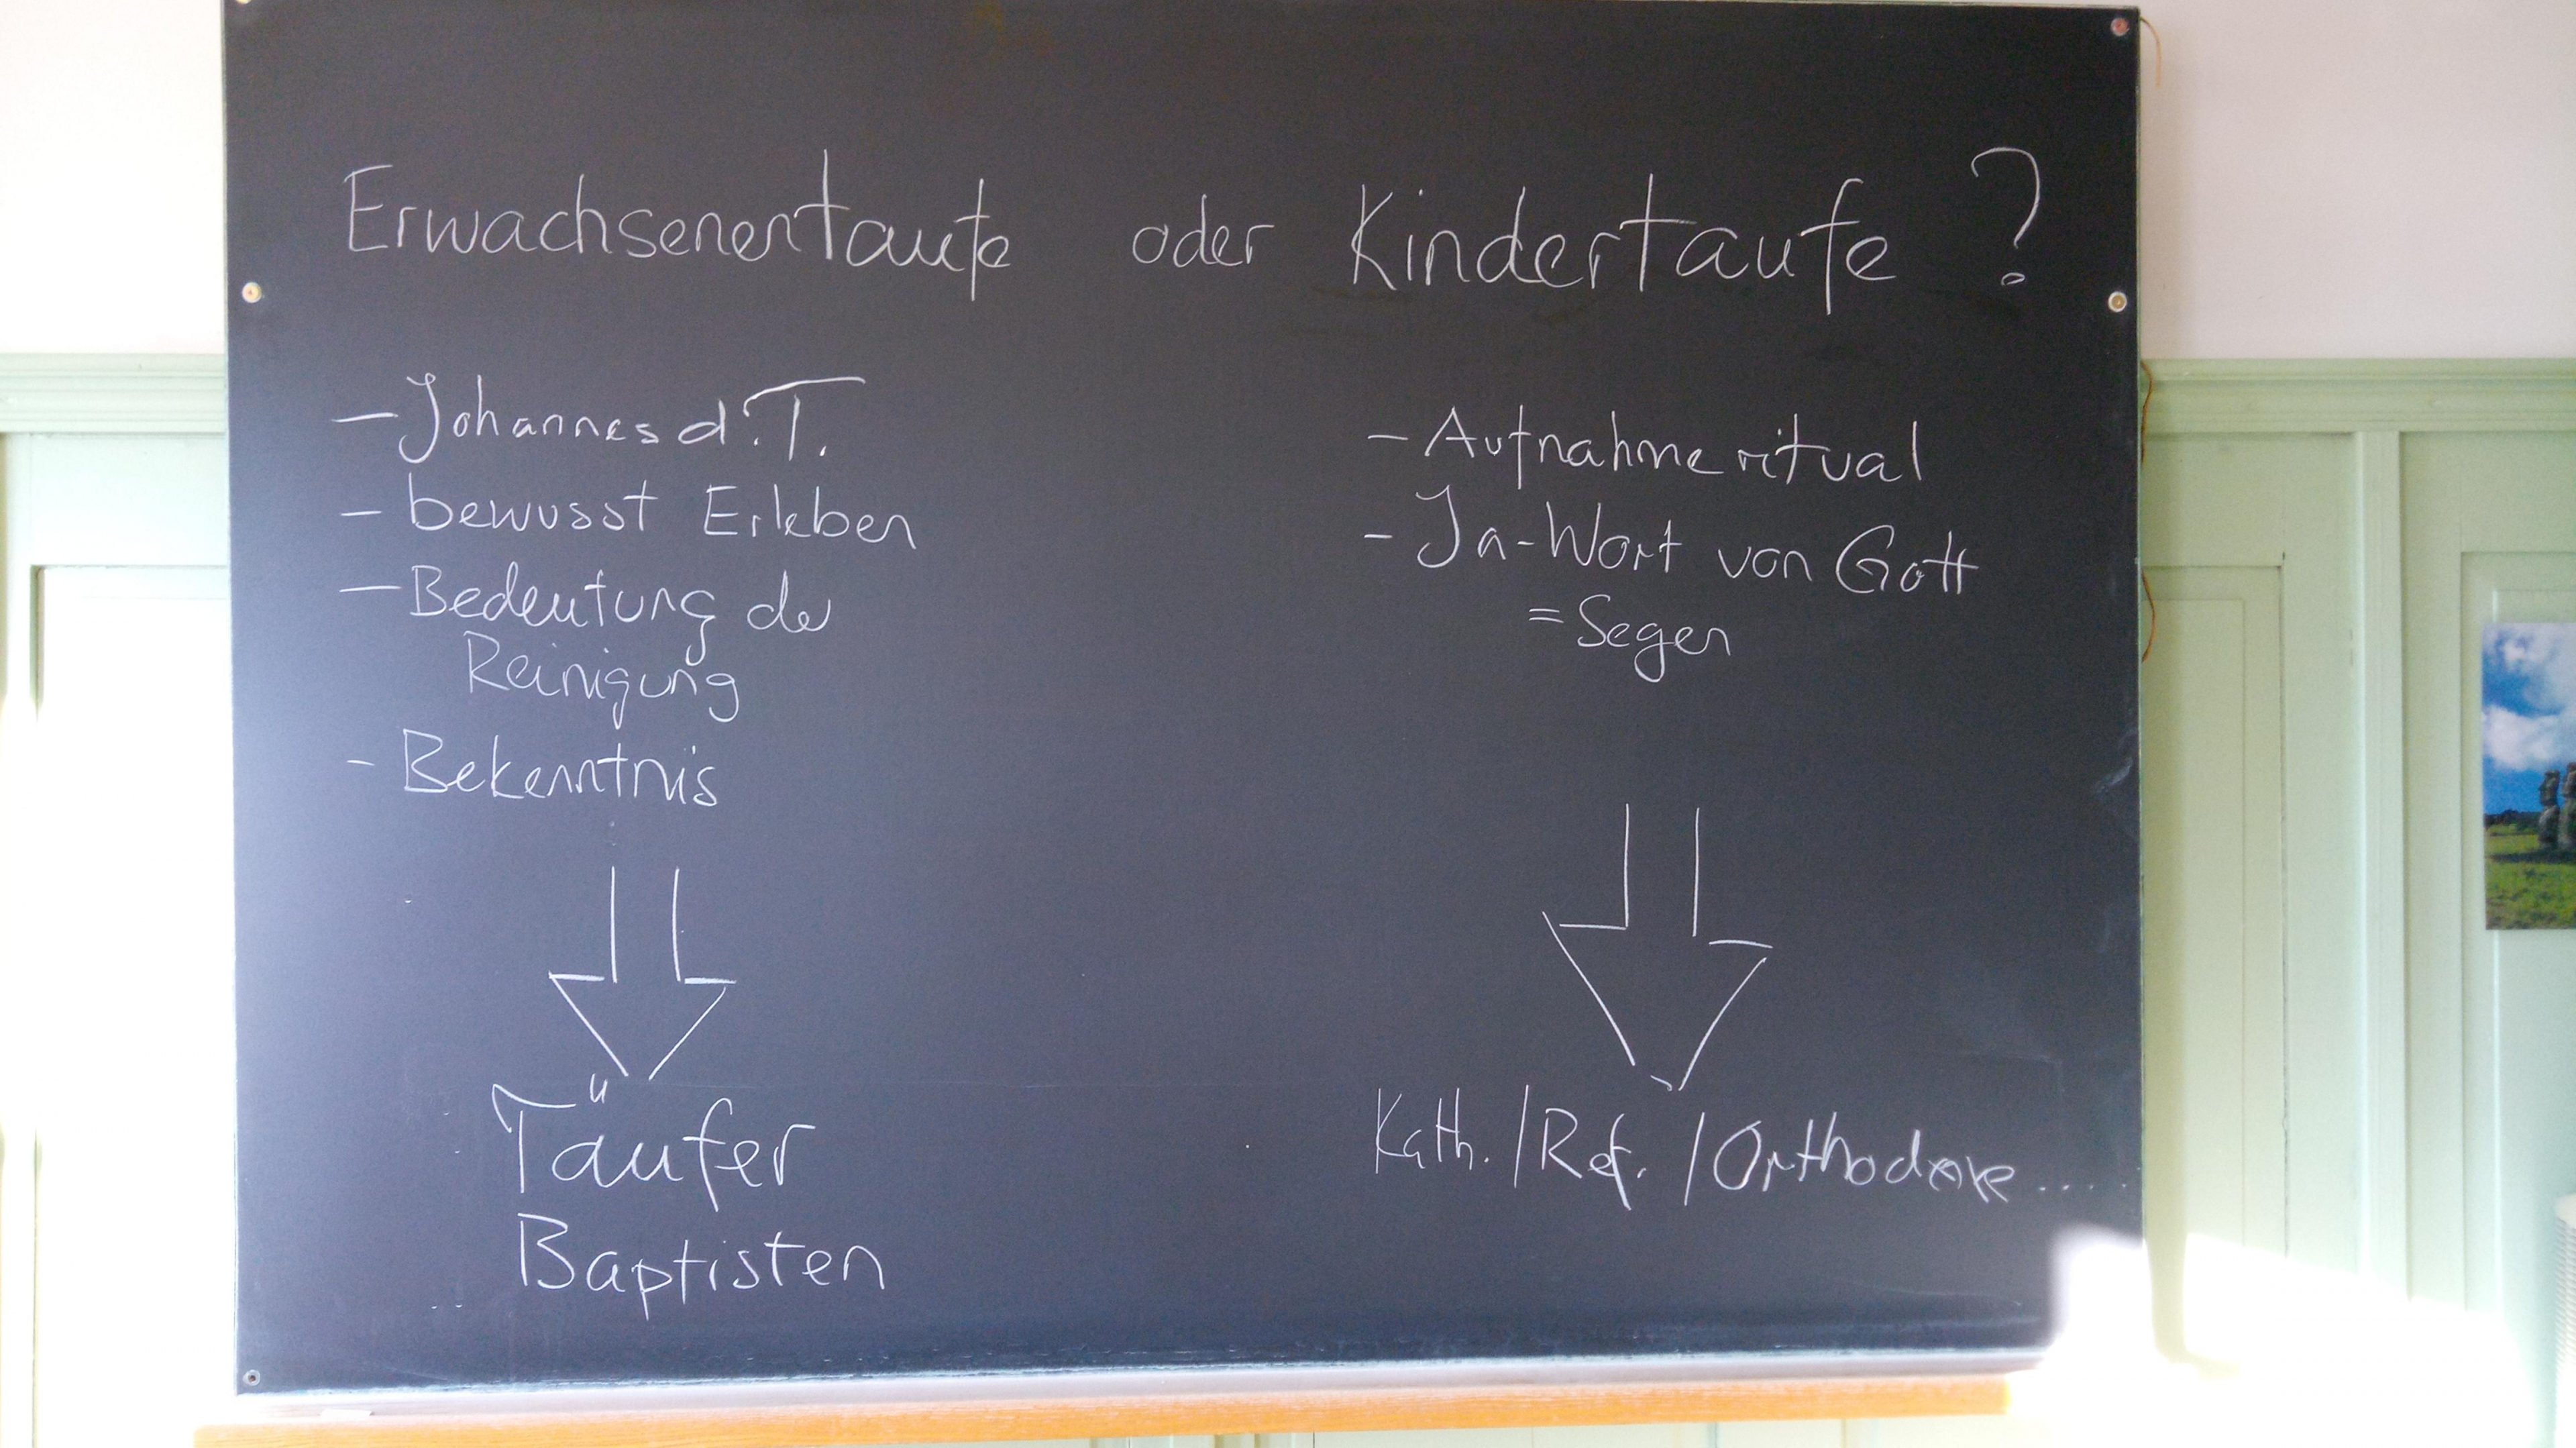 Erwachsenentaufe oder Kindertaufe ?
- Johannes d. T.
- bewusst Erleben
- Bedeutung der
Reinigung
- Bekenntnis
Täufer
Baptisten
- Aufnahmeritual
- Ja-Wort von Gott
= Segen
Kath. / Ref. / Orthodoxe .....